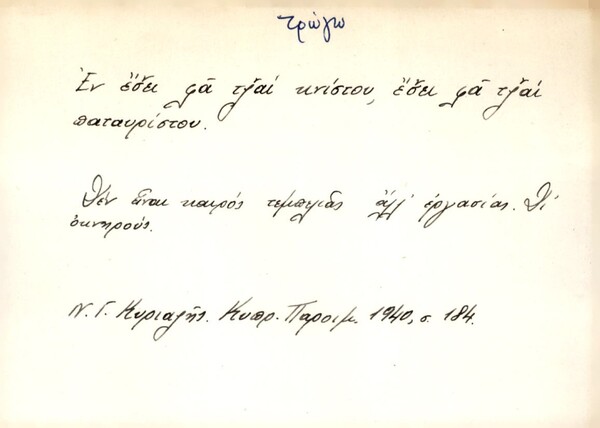 τρώγω
Ἐν ἔσ̌ει φᾶ τζ̌αί κνίστου, ἔσ̌ει φᾶ τζ̌αί
παταυρίστου.
Δέν εἶναι καιρός τεμπελιᾶς ἀλλ' ἐργασίας. Δι'
ὀκνηρούς.
Ν. Γ. Κυριαζῆς. Κυπρ. Παροιμ. 1940, σ. 184.